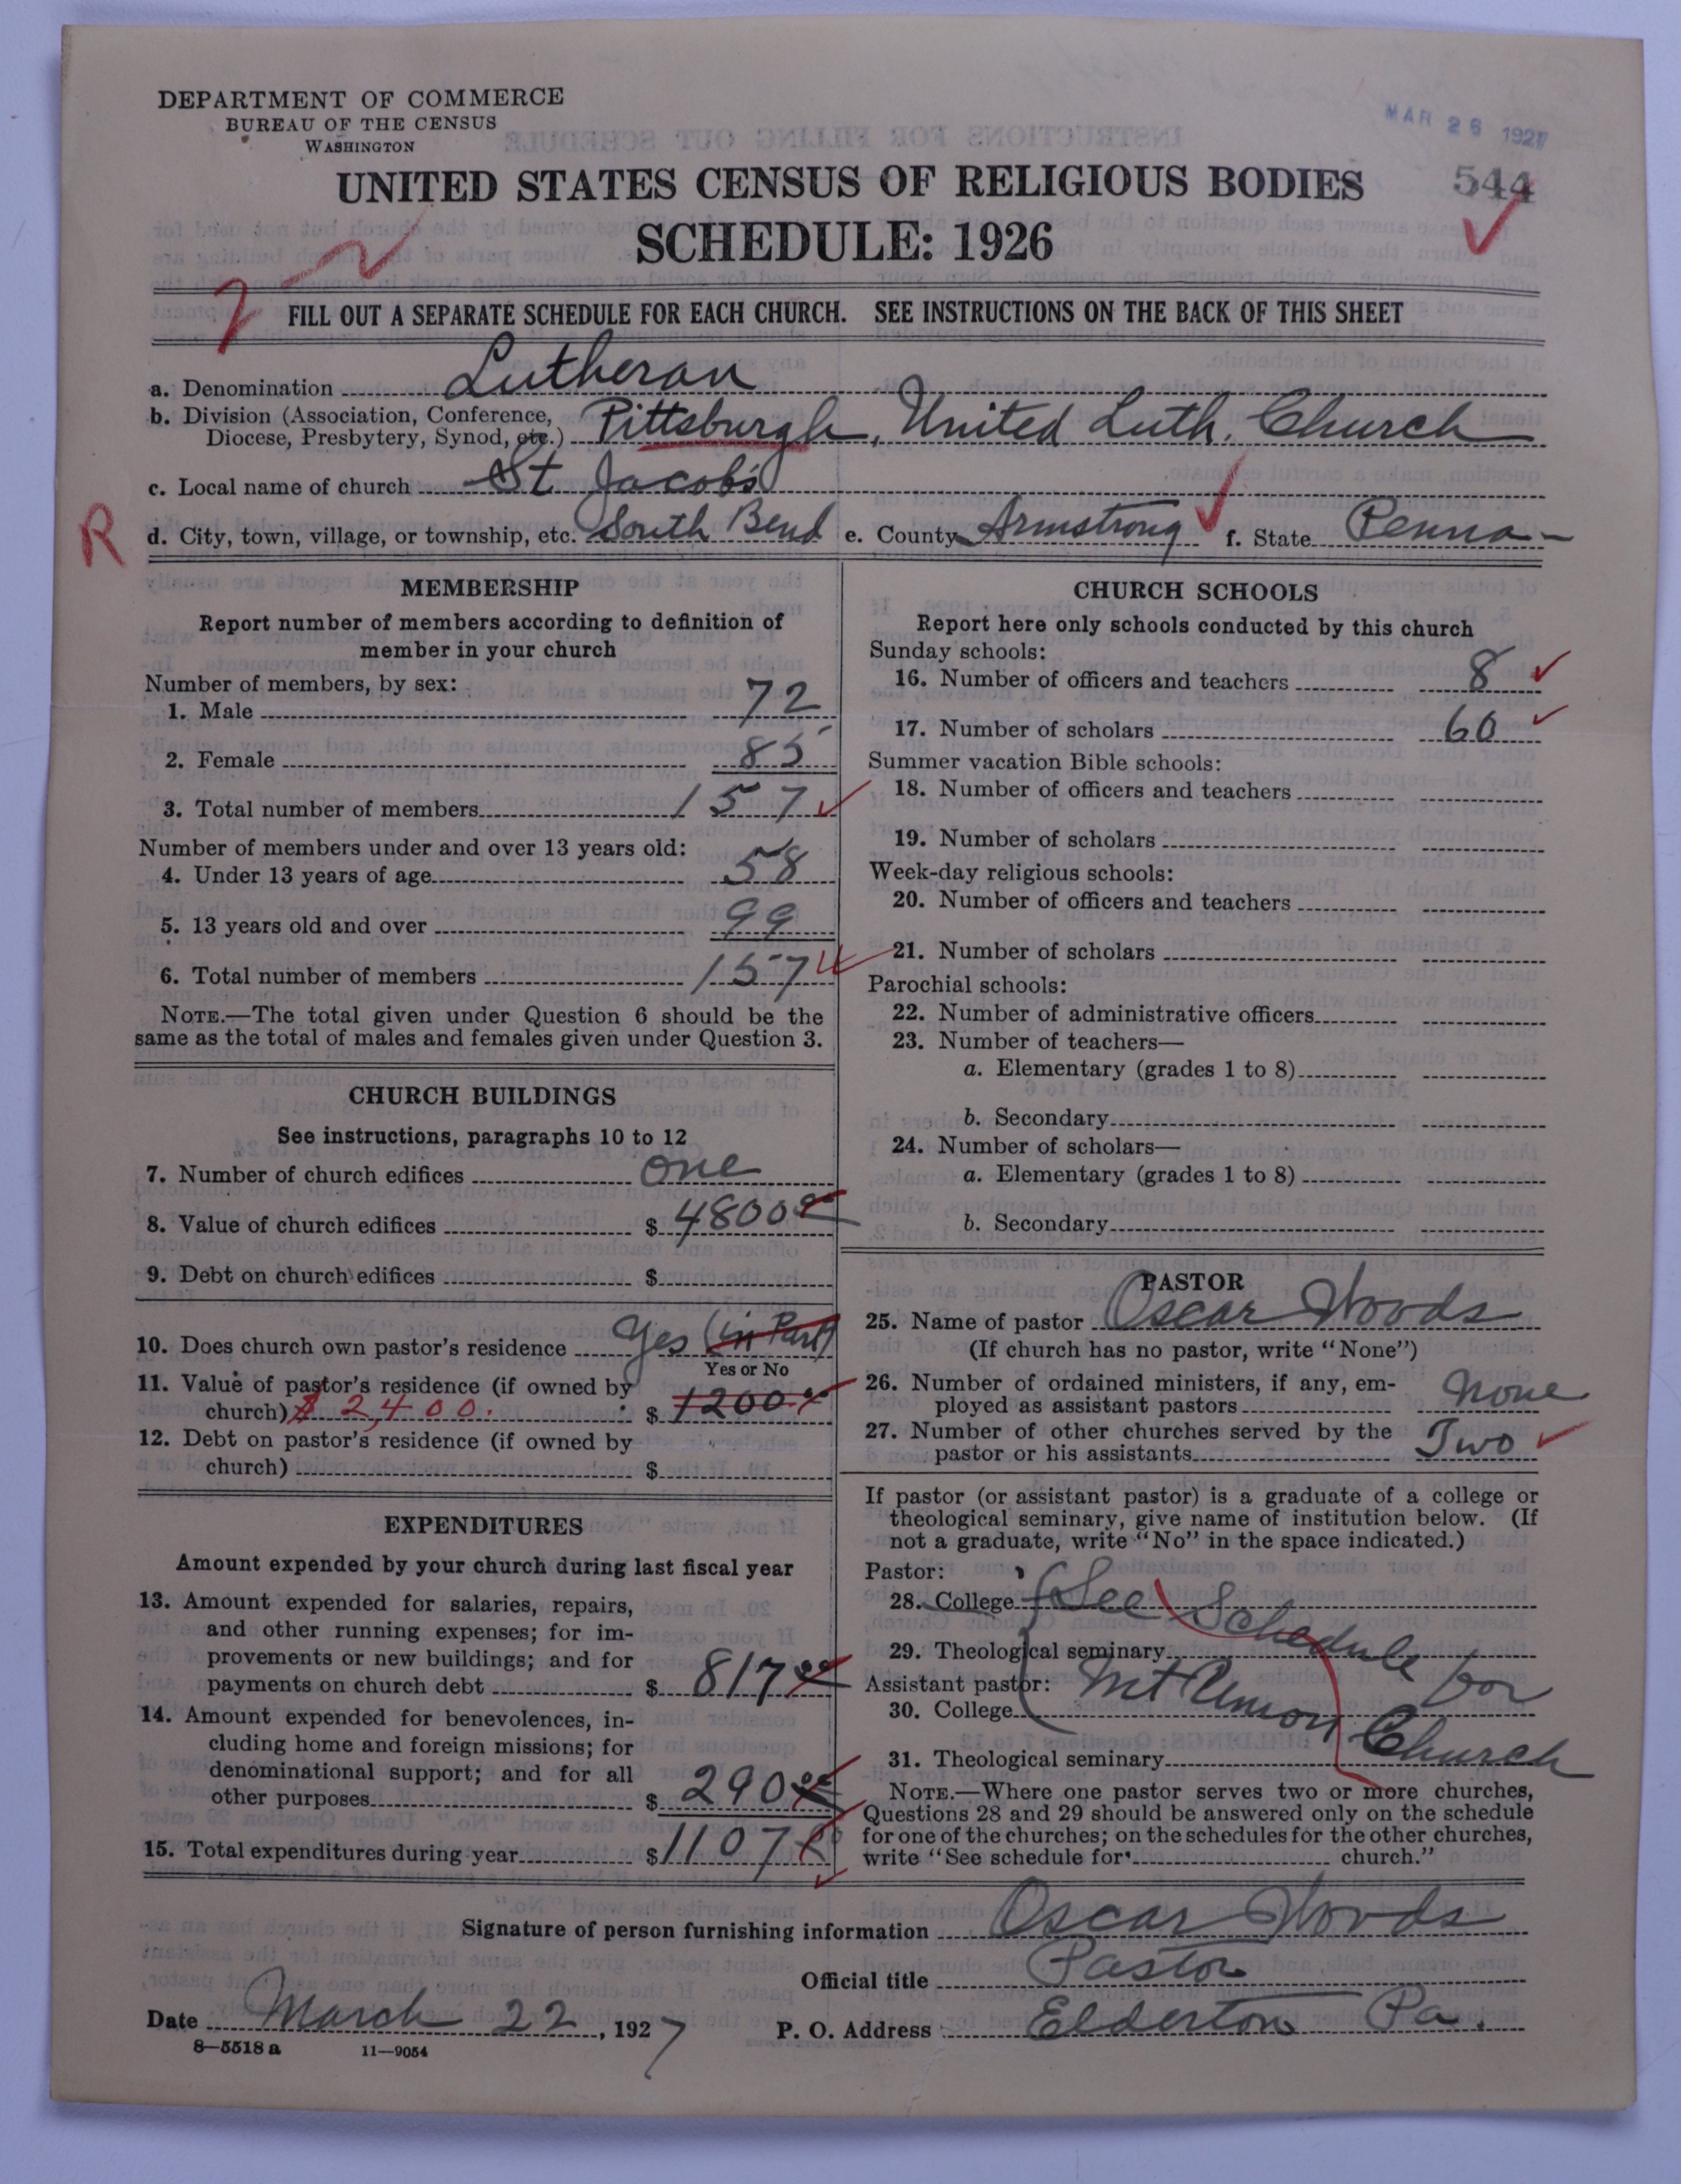 DEPARTMENT OF COMMERCE
BUREAU OF THE CENSUS
WASHINGTON
MAR 26 1927
UNITED STATES CENSUS OF RELIGIOUS BODIES
544
SCHEDULE: 1926
FILL OUT A SEPARATE SCHEDULE FOR EACH CHURCH. SEE INSTRUCTIONS ON THE BACK OF THIS SHEET
a. Denomination Lutheran
b. Division (Association, Conference, Diocese, Presbytery, Synod, etc.) Pittsburgh, United Luth. Church
c. Local name of church St Jacob's
R
d. City, town, village, or township, etc. South Bend e. County Armstrong f. State Penna
MEMBERSHIP
Report number of members according to definition of
member in your church
Number of members, by sex:
1. Male 72
2. Female 85
3. Total number of members 157
Number of members under and over 13 years old:
4. Under 13 years of age 58
5. 13 years old and over 99
6. Total number of members 157
NOTE.—The total given under Question 6 should be the
same as the total of males and females given under Question 3.
CHURCH BUILDINGS
See instructions, paragraphs 10 to 12
7. Number of church edifices one
8. Value of church edifices $ 4800 00
9. Debt on church edifices $
10. Does church own pastor's residence Yes (in Part)
Yes or No
11. Value of pastor's residence (if owned by
church) $2,400. $ 1200.00
12. Debt on pastor's residence (if owned by
church) $
EXPENDITURES
Amount expended by your church during last fiscal year
13. Amount expended for salaries, repairs,
and other running expenses; for im-
provements or new buildings; and for
payments on church debt $ 817 00
14. Amount expended for benevolences, in-
cluding home and foreign missions; for
denominational support; and for all
other purposes $ 290 00
15. Total expenditures during year $ 1107
CHURCH SCHOOLS
Report here only schools conducted by this church
Sunday schools:
16. Number of officers and teachers 8
17. Number of scholars 60
Summer vacation Bible schools:
18. Number of officers and teachers
19. Number of scholars
Week-day religious schools:
20. Number of officers and teachers
21. Number of scholars
Parochial schools:
22. Number of administrative officers
23. Number of teachers—
a. Elementary (grades 1 to 8)
b. Secondary
24. Number of scholars—
a. Elementary (grades 1 to 8)
b. Secondary
PASTOR
25. Name of pastor Oscar Woods
(If church has no pastor, write "None")
26. Number of ordained ministers, if any, em-
ployed as assistant pastors None
27. Number of other churches served by the
pastor or his assistants Two
If pastor (or assistant pastor) is a graduate of a college or
theological seminary, give name of institution below. (If
not a graduate, write "No" in the space indicated.)
Pastor:
28. College See Schedule for
29. Theological seminary
Assistant pastor: Mt Union Church
30. College
31. Theological seminary
NOTE.—Where one pastor serves two or more churches,
Questions 28 and 29 should be answered only on the schedule
for one of the churches; on the schedules for the other churches,
write "See schedule for church."
Signature of person furnishing information Oscar Woods
Official title Pastor
Date March 22, 1927 P. O. Address Elderton Pa.
8—5518 a 11—9054